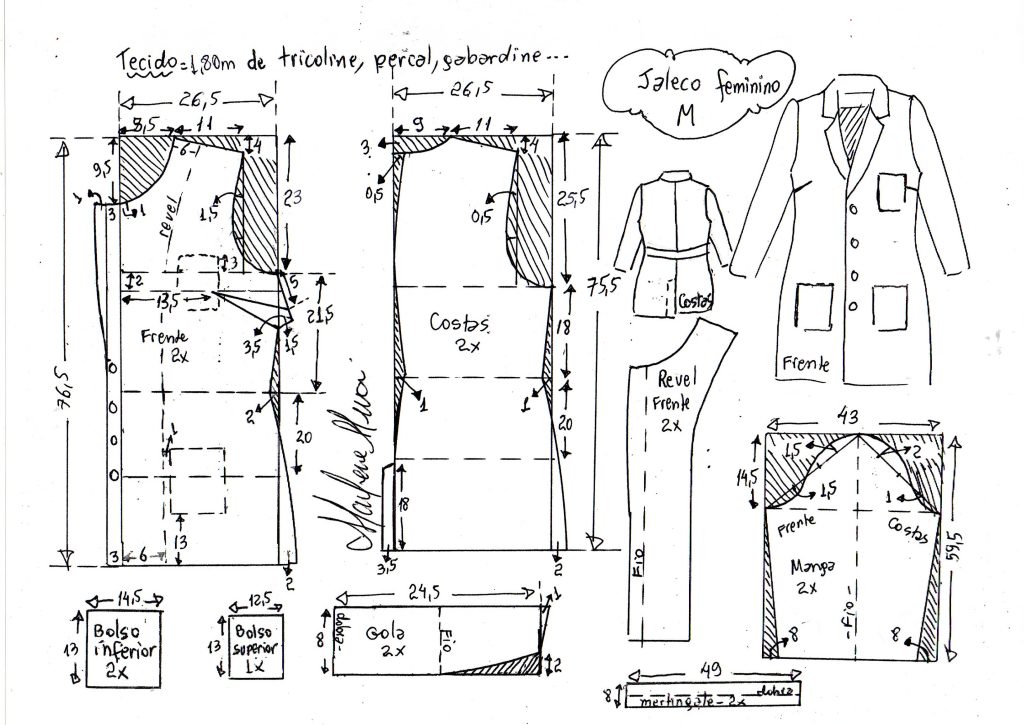 Tecido=1,80m de tricoline, percal, gabardine...
Jaleco feminino
M
26,5
8,5
11
9,5
6
4
3
1
1,5
23
revel
3
2
13,5
5
21,5
3,5
1,5
Frente
2x
76,5
2
20
1
13
3
6
2
26,5
9
11
3
4
0,5
0,5
25,5
75,5
Costas
2x
18
1
1
20
18
3,5
2
Marlene Mukai
Costas
Frente
Revel
Frente
2x
Fio
43
14,5
1,5
2
1,5
1
Frente
Costas
59,5
Manga
2x
-Fio-
8
8
14,5
13
Bolso
inferior
2x
12,5
13
Bolso
superior
1x
24,5
1
8
-dobra-
Gola
2x
Fio
2
49
8
martingale-2x
dobra